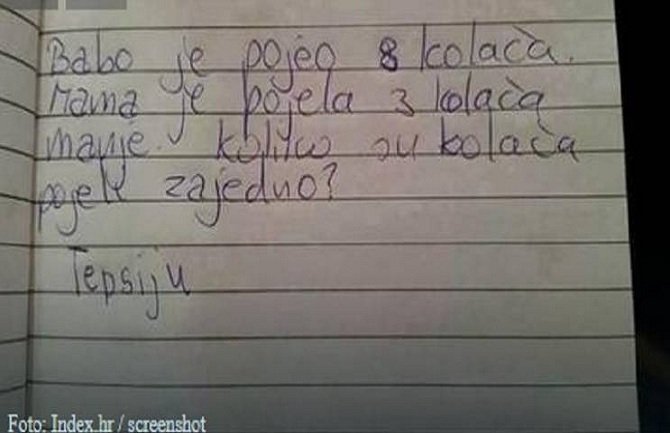 Babo je pojeo 8 kolača.
Mama je pojela 3 kolača
manje. Koliko su kolača
pojeli zajedno?
Tepsiju
Foto: Index.hr / screenshot